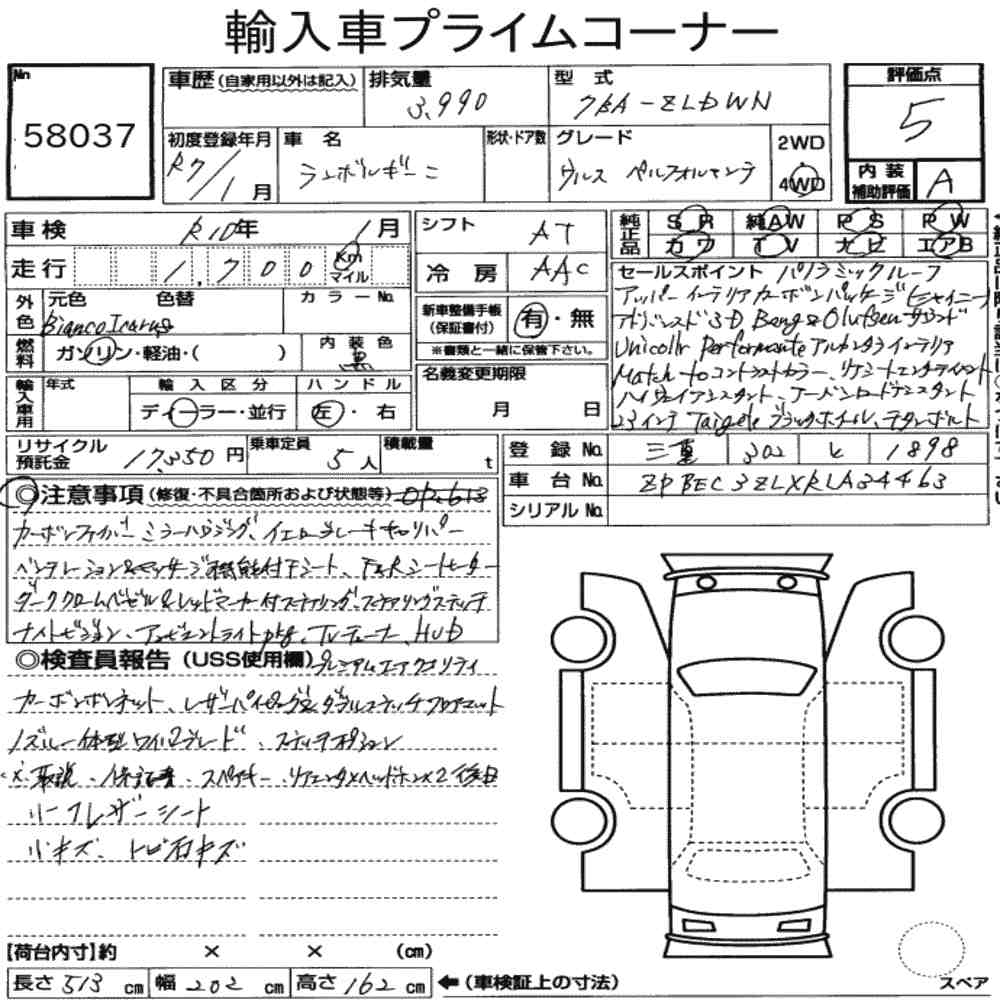 輸入車プライムコーナー
No
58037
車歴 (自家用以外は記入)
排気量
3,990
型式
7BA-ZLDWN
評価点
5
初度登録年月
R7/1月
車名
ランボルギーニ
形状・ドア数
グレード
ウルス ペルフォルマンテ
2WD
4WD
内装補助評価
A
車検 R10年 1月
走行 1,700 Km マイル
シフト AT
冷房 AAC
純正品
SR 純AW PS PW
カワ TV ナビ エアB
外色
元色 色替
Bianco Icarus
カラーNo.
燃料
ガソリン・軽油・( )
内装色
黒
新車整備手帳(保証書付)
有・無
※書類と一緒に保管下さい。
名義変更期限
月 日
セールスポイント パノラミックルーフ
アッパーインテリアカーボンパッケージ(シャイニー)
アドバンスド3D Bang & Olufsenサウンド
Unicolor Performanteアルカンタラインテリア
Match toコントラストカラー、リアシートエンタテイメント
ハイウェイアシスタント、アーバンロードアシスタント
23インチ Taigeteブラックホイル、チタンボルト
輸入車用
年式
輸入区分
ディーラー・並行
ハンドル
左・右
リサイクル預託金 17,350円
乗車定員 5人
積載量 t
登録No. 三重 302 と 1898
車台No. ZPBEC3ZLXRLA34463
シリアルNo.
◎注意事項 (修復・不具合箇所および状態等) OP.613
カーボンファイバーミラーハウジング、イエローブレーキキャリパー
ベンチレーション&マッサージ機能付Fシート、F&Rシートヒーター
ダーククロームベゼル&レッドマーカー付ステアリング、ステアリングステッチ
ナイトビジョン、アンビエントライトpkg、TVチューナー、HUD
◎検査員報告 (USS使用欄) プレミアムエアクオリティ
カーボンボンネット、レザーパイピング&ダブルステッチフロアマット
ノズル一体型ワイパーブレード、ステッチオプション
※取説、保証書、スペアキー、リアエンタメヘッドホン×2後日
リーフレザーシート
小キズ、トビ石キズ
【荷台内寸】約 × × (cm)
長さ 513 cm 幅 202 cm 高さ 162 cm ←(車検証上の寸法)
スペア